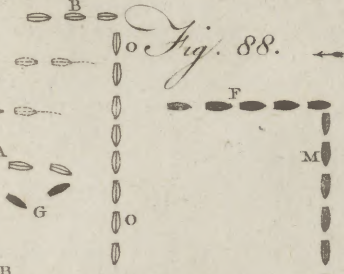 B
O
Fig. 88.
F
A
M
G
O
B